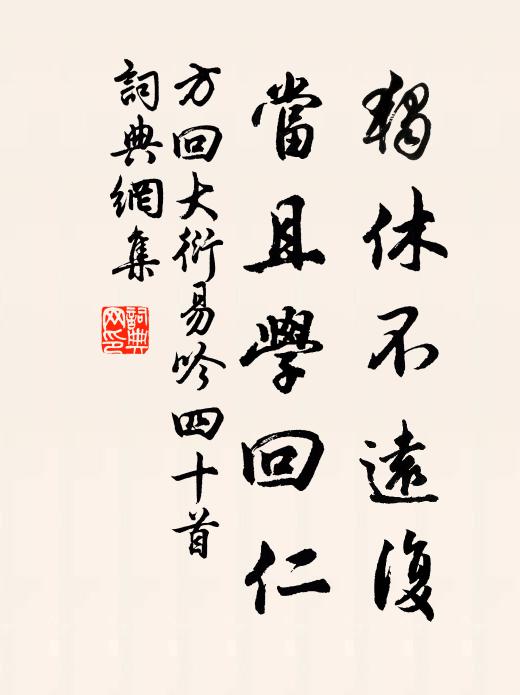 獨休不遠復
當且學回仁
方回大衍易吟四十首
詞典網集
詞典网印